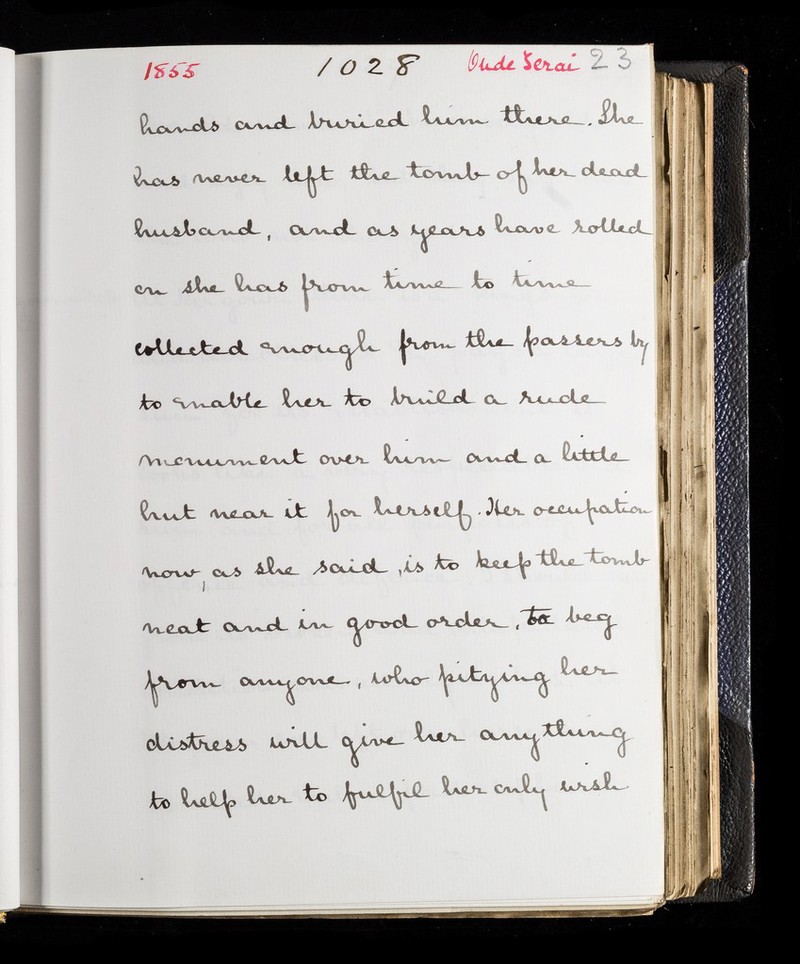 1855 1028 Oude Terai 23
hands and buried him there. She
has never left the tomb of her dead
husband, and as years have rolled
on she has from time to time
collected enough from the passers by
to enable her to build a rude
monument over him and a little
hut near it for herself. Her occupation
now, as she said, is to keep the tomb
neat and in good order, to beg
from anyone, who pitying her
distress will give her anything
to help her to fulfil her only wish